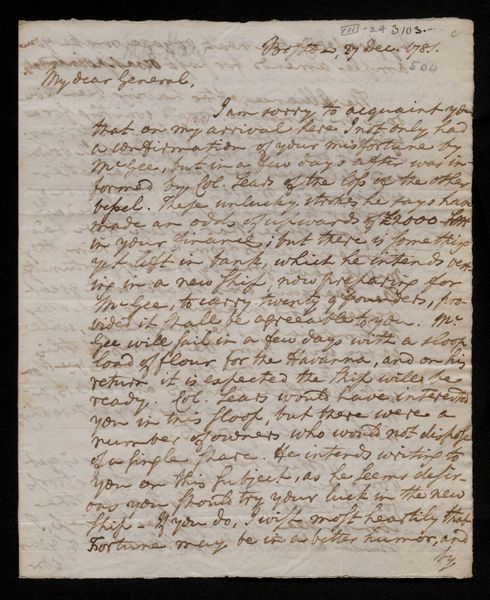 VII-24 3103.
Boston, 27 Dec. 1781.
504
My dear General,
I am sorry to acquaint you
that on my arrival here I not only had
a confirmation of your misfortune by
McGee, but in a few days after was in-
formed by Col. Sears of the loss of the other
vessel. These unlucky strokes he says have
made an odds of upwards of £2000
in your finances, but there is something
yet left in bank, which he intends ven-
ing in a new Ship, now preparing for
McGee, to carry twenty 9 pounders, pro-
vided it shall be agreeable to you. Mc
Gee will sail in a few days with a sloop
load of flour for the Havanna, and on his
return it is expected the ship will be
ready. Col. Sears would have interested
you in this sloop, but there were a
number of owners who would not dispose
of a single share. He intends writing to
you on this subject, as he seems desir-
ous you should try your luck in the new
Ship - If you do, I wish most heartily that
Fortune may be in a better humor, and
by